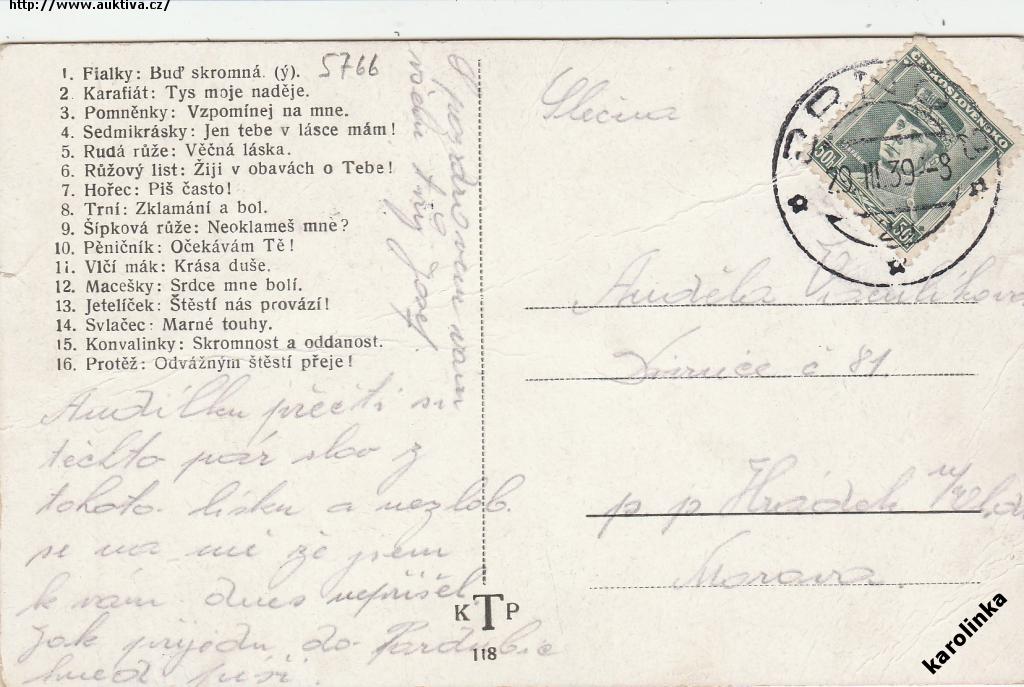 http://www.auktiva.cz/
1. Fialky: Buď skromná. (ý).
5766
2. Karafiát: Tys moje naděje.
3. Pomněnky: Vzpomínej na mne.
4. Sedmikrásky: Jen tebe v lásce mám!
5. Rudá růže: Věčná láska.
6. Růžový list: Žiji v obavách o Tebe!
7. Hořec: Piš často!
8. Trní: Zklamání a bol.
9. Šípková růže: Neoklameš mně?
10. Pěničník: Očekávám Tě!
11. Vlčí mák: Krása duše.
12. Macešky: Srdce mne bolí.
13. Jetelíček: Štěstí nás provází!
14. Svlačec: Marné touhy.
15. Konvalinky: Skromnost a oddanost.
16. Protěž: Odvážným štěstí přeje!
Andílku přečti si
těchto pár slov z
tohoto lísku a nezlob.
se na mě že jsem
k vám dnes nepřišel
jak přijedu do Pardubic
hned píši.
S pozdravem vám
tvůj Josef
KTP
118
Slečna
ČESKOSLOVENSKO
50h
50h
19.III.39-8
Anděla
č 81.
p. p. Hrádek
Morava.
karolinka